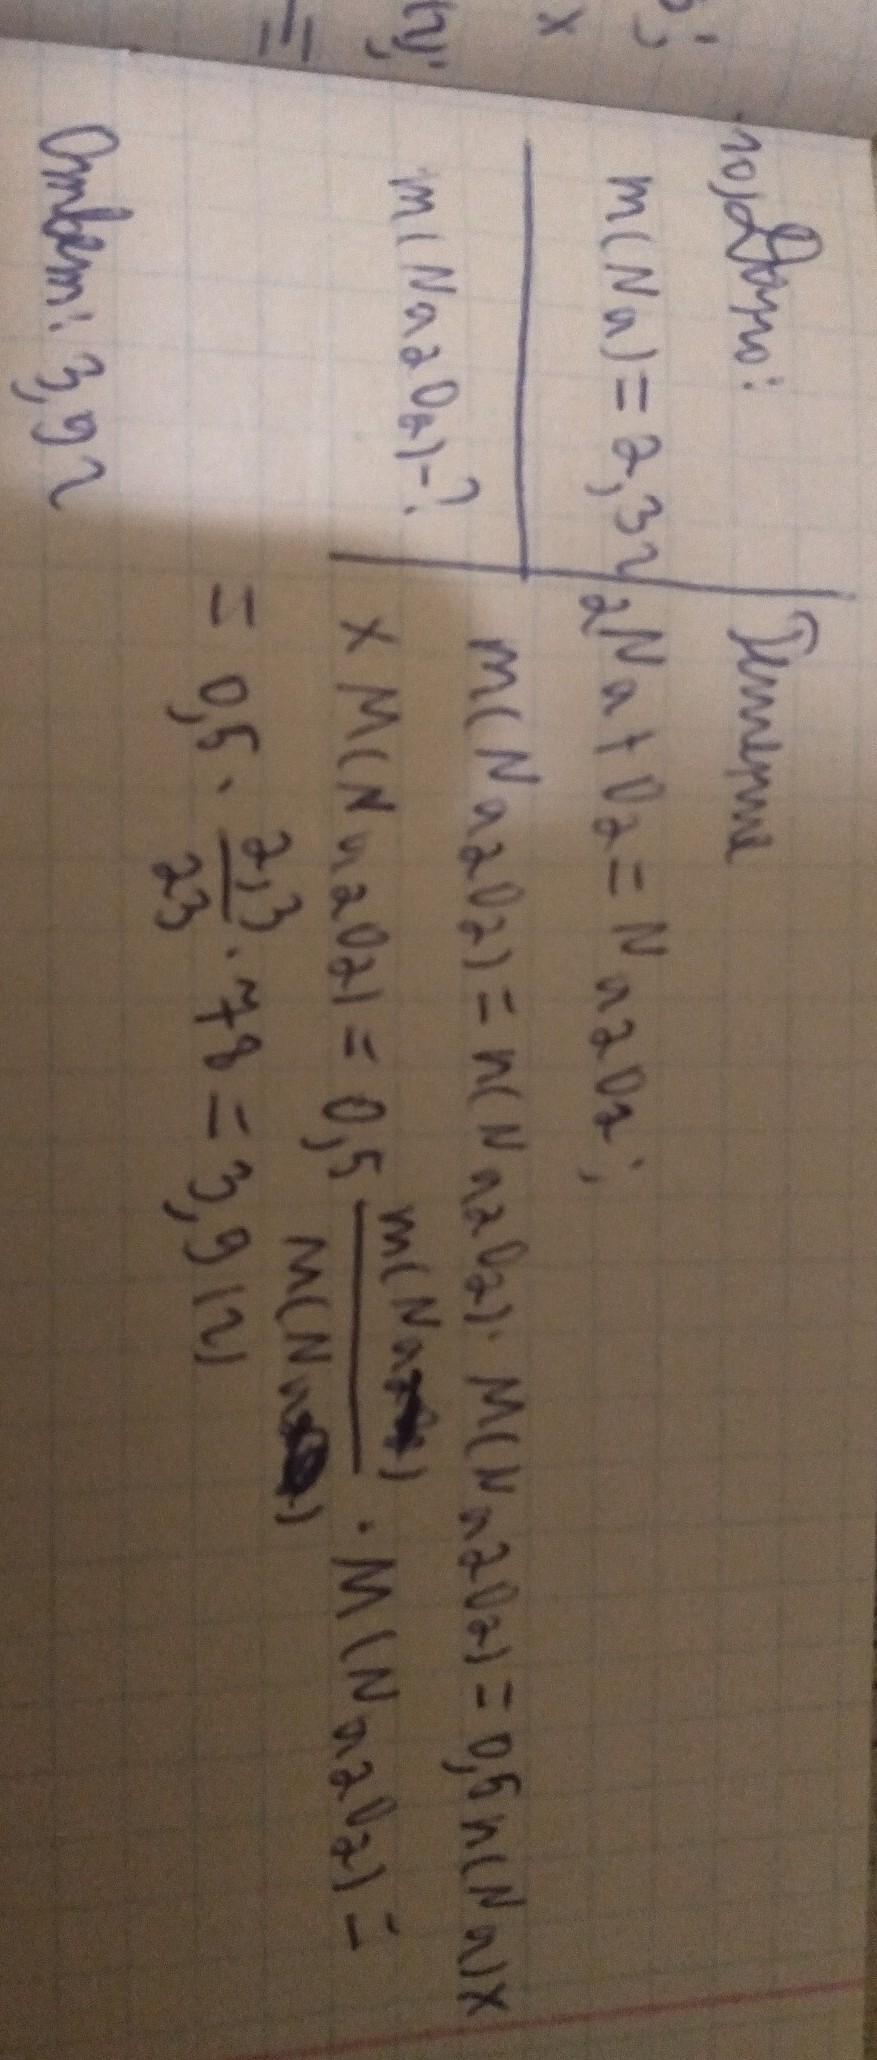 Дано:
m(Na) = 2,3г
m(Na2O2) - ?
Решение
2Na + O2 = Na2O2;
m(Na2O2) = n(Na2O2) · M(Na2O2) = 0,5 n(Na) x
x M(Na2O2) = 0,5 m(Na) / M(Na) · M(Na2O2) =
= 0,5 · 2,3 / 23 · 78 = 3,9 (г)
Ответ: 3,9 г